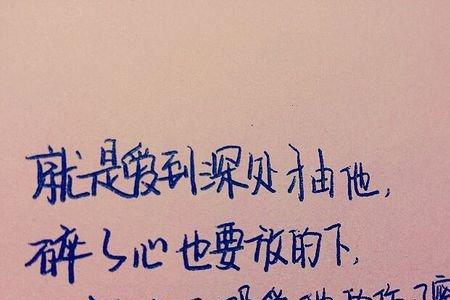 就是爱到深处才由他,
碎了心也要放的下,